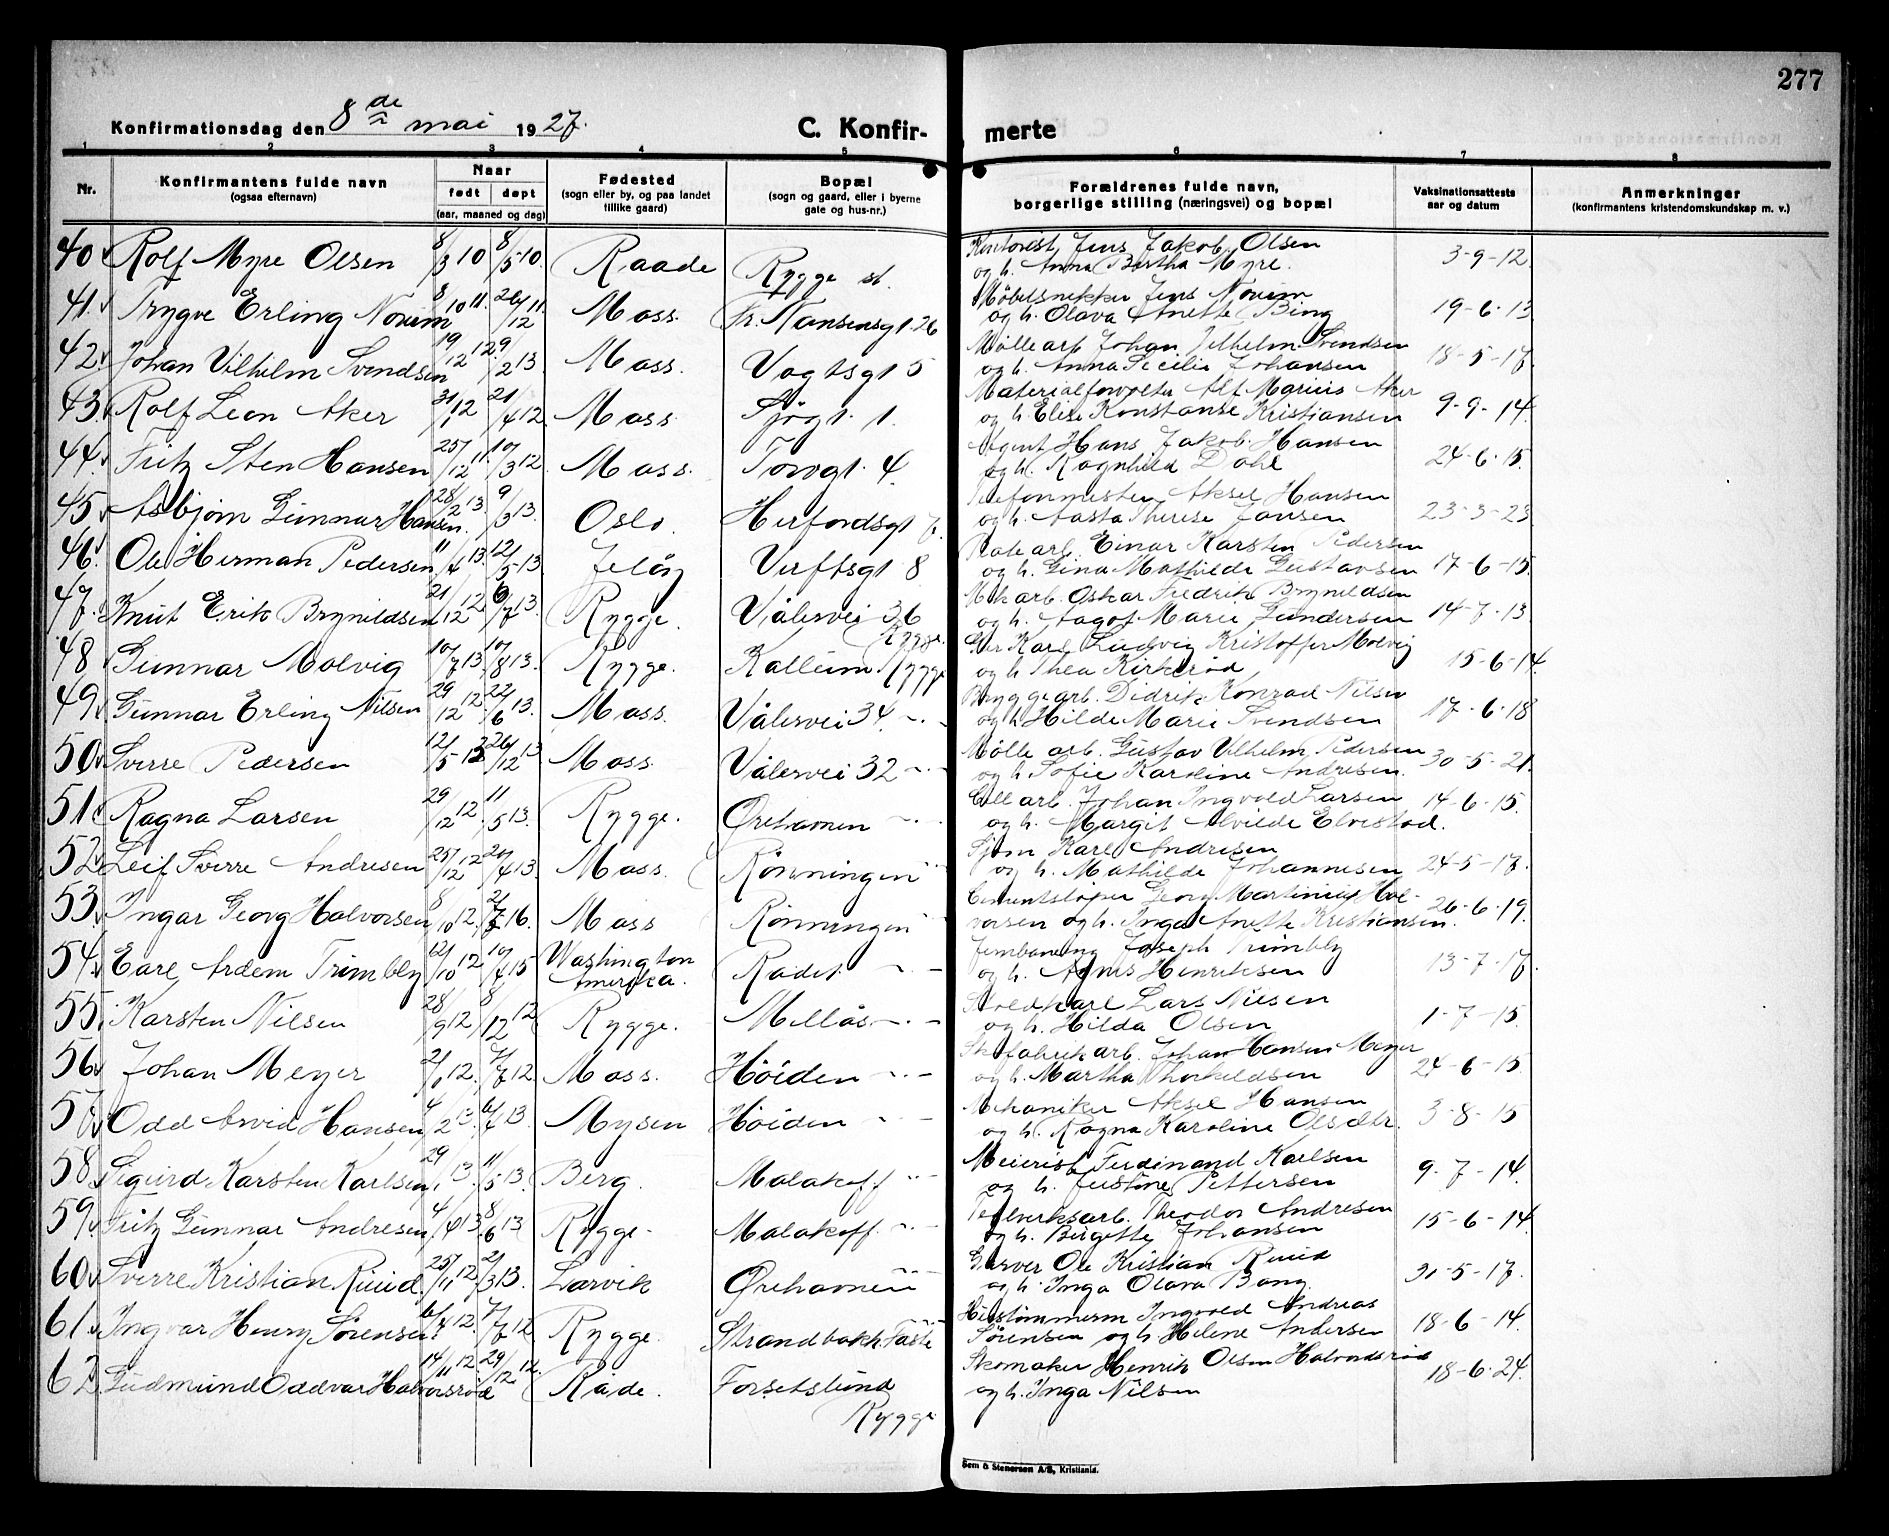 277
Konfirmationsdag den 8de mai 1927.
C. Konfir-merte
1 2 3 4 5 6 7 8
Nr.
Konfirmantens fulde navn
(ogsaa efternavn)
Naar
født døpt
(aar, maaned og dag)
Fødested
(sogn eller by, og paa landet
tillike gaard)
Bopæl
(sogn og gaard, eller i byerne
gate og hus-nr.)
Forældrenes fulde navn,
borgerlige stilling (næringsvei) og bopæl
Vaksinationsattests
aar og datum
Anmerkninger
(konfirmantens kristendomskundskap m. v.)
40 Rolf Myre Olsen 8/3 10 8/5 10. Raade Rygge st. Kontorist Jens Jakob Olsen
og h. Anna Bertha Myre. 3-9-12
41. Trygve Erling Novim 8/10 11. 26/12 11. Moss. Fr. Nansensgt. 26 Møbelsnekker Jens Novim
og h. Olava Anette Bing 19-6-13
42. Johan Vilhelm Svendsen 19/12 12. 9/2 13 Moss. Vogtsgt 5 Møllearb. Johan Vilhelm Svendsen
og h. Anna Cecilie Johansen 18-5-17.
43. Rolf Leon Aker 31/1 12 21/4 12 Moss. Sjøgt. 1. Materialforvalter Alf Marius Aker
og h. Elise Konstanse Kristiansen 9-9-14.
44. Fritz Sten Hansen 25/12 11. 10/3 12 Moss. Torvgt. 4. Agent Hans Jakob Hansen
og h. Ragnhild Dahl 24-6-15.
45 Asbjørn Gunnar Hansen. 28/2 13. 9/3 13. Oslo. Herfordsgt 7. Telefonmester Aksel Hansen
og h. Aasta Therese Jansen 23-3-23
46. Ole Herman Pedersen 11/4 13. 12/5 13. Jeløy Verftsgt 8 arb. Einar Karsten Pedersen
og h. Gina Mathilde Gustavsen 17-6-15.
47. Knut Erik Brynildsen 21/12 12. 6/7 13. Rygge. Vålervei 36
Rygge. Mek arb. Oskar Fredrik Brynildsen
og h. Aagot Marie Gundersen 14-7-13.
48 Gunnar Molvig 10/7 13. 10/8 13. Rygge. Kallum Rygge Karl Ludvig Kristoffer Molvig
og h. Thea Kirkerød 15-6-14.
49. Gunnar Erling Nilsen 29/12 12. 22/6 13. Moss. Vålervei 34 -"- Bryggearb. Didrik Konrad Nilsen
og h. Hilde Marie Svendsen 17-6-18
50. Sverre Pedersen 12/5 13 26/12 13 Moss. Vålervei 32 -"- Mølle arb. Gustav Vilhelm Pedersen
og h. Sofie Karoline Andresen. 30-5-21.
51. Ragna Larsen 29/12 12. 11/5 13. Rygge. Ørehamen -"- Cell arb. Johan Ingvald Larsen
og h. Margit Alvilde Elvestad. 14-6-15.
52 Leif Sverre Andresen 25/12 12 20/4 13 Moss. Rønningen -"- Sjøm Karl Andresen
og h. Mathilde Johannesen 24-5-17.
53. Ingar Georg Halvorsen 8/10 12. 21/7 16. Moss Rønningen -"- Cementstøper Georg Martinius Hal-
vorsen og h. Inga Anette Kristiansen. 26-6-19.
54. Earl Ardem Trimbly 12/10 12 10/7 15 Washington
Amerika. Rådet -"- Jernbaning Joseph Trimbly
og h. Agnes Henriksen 13-7-17.
55. Karsten Nilsen 28/9 12 8/12 12 Rygge. Mellås -"- Lars Nilsen
og h. Hilda Olsen 1-7-15.
56 Johan Meyer 21/1 12. 7/7 12. Moss. Høiden -"- Skofabrik arb. Johan Hansen Meyer
og h. Martha Thorkildsen 24-6-15.
57 Odd Arvid Hansen 4/2 13. 6/4 13. Mysen Høiden -"- Mekaniker Aksel Hansen
og h. Ragna Karoline Olsdtr. 3-8-15
58. Sigurd Karsten Karlsen 29/1 13. 11/5 13. Berg. Malakoff -"- Meierist Ferdinand Karlsen
og h. Justine Pettersen 9-7-14.
59. Fritz Gunnar Andresen 4/4 13. 8/6 13 Rygge. Malakoff. -"- Teglverksarb. Theodor Andresen
og h. Birgette Johansen 15-6-14.
60. Sverre Kristian Ruud 25/11 12. 21/3 13. Larvik Ørehamen -"- Garver Ole Kristian Ruud
og h. Inga Olava Bang 31-5-17.
61. Ingvar Henry Sørensen 6/4 12. 7/7 12. Rygge. Strandbakk. Faste -"- Hustømmerm Ingvald Andreas
Sørensen og h. Helene Andersen 18-6-14.
62 Gudmund Oddvar Halvorsrød 14/11 12. 29/12 12. Råde. Forsetslund
Rygge Skomaker Henrik Olsen Halvordsrød
og h. Inga Nilsen 18-6-24.
Sem & Stenersen A/S, Kristiania.